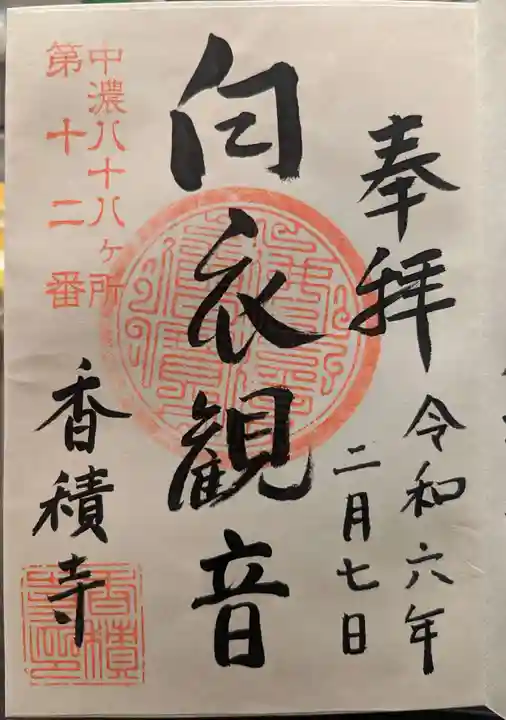 奉拝
令和六年
二月七日
白衣観音
中濃八十八ヶ所
第十二番
香積寺
香積寺印